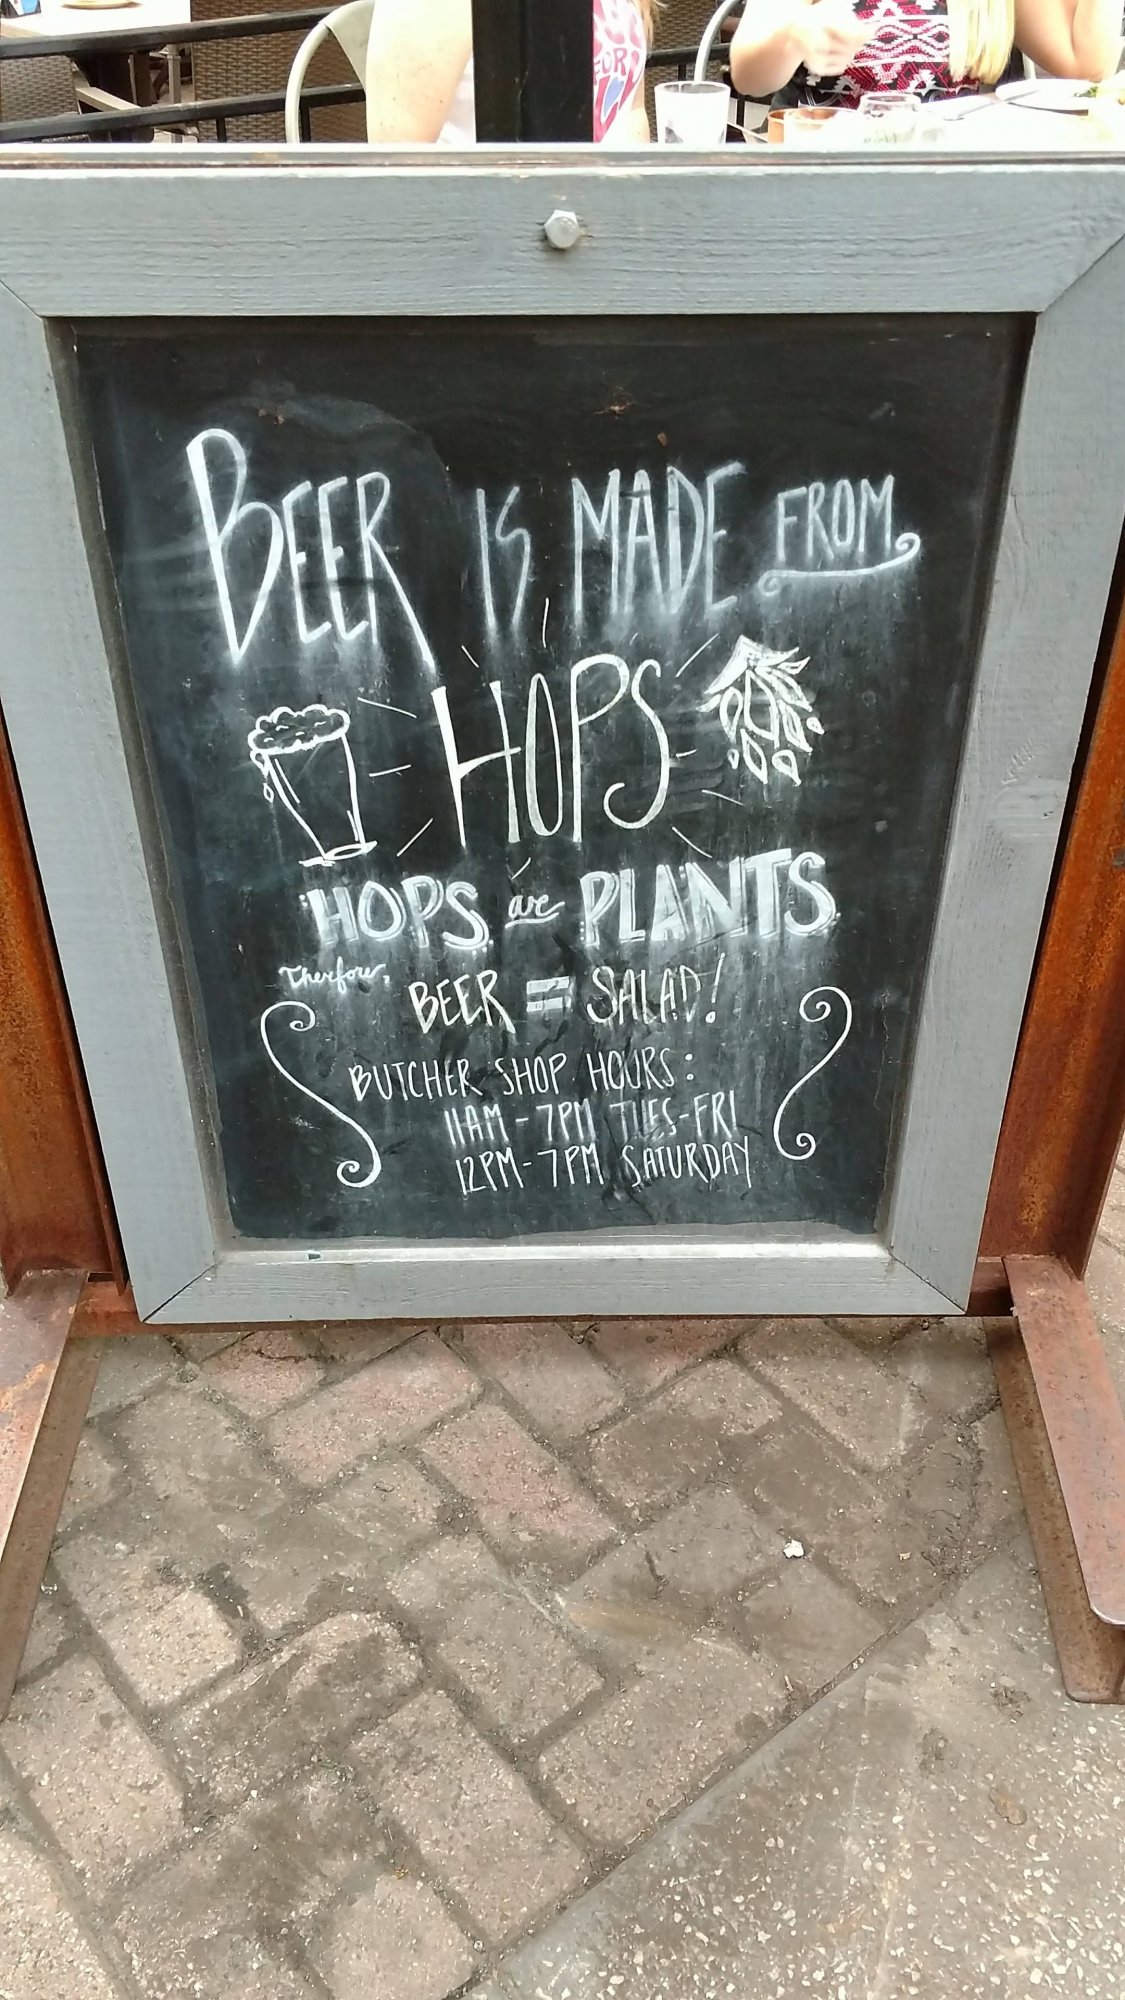 BEER IS MADE FROM
HOPS
HOPS are PLANTS
Therfore,
BEER = SALAD!
BUTCHER SHOP HOURS:
11AM - 7PM TUES-FRI
12PM - 7PM SATURDAY